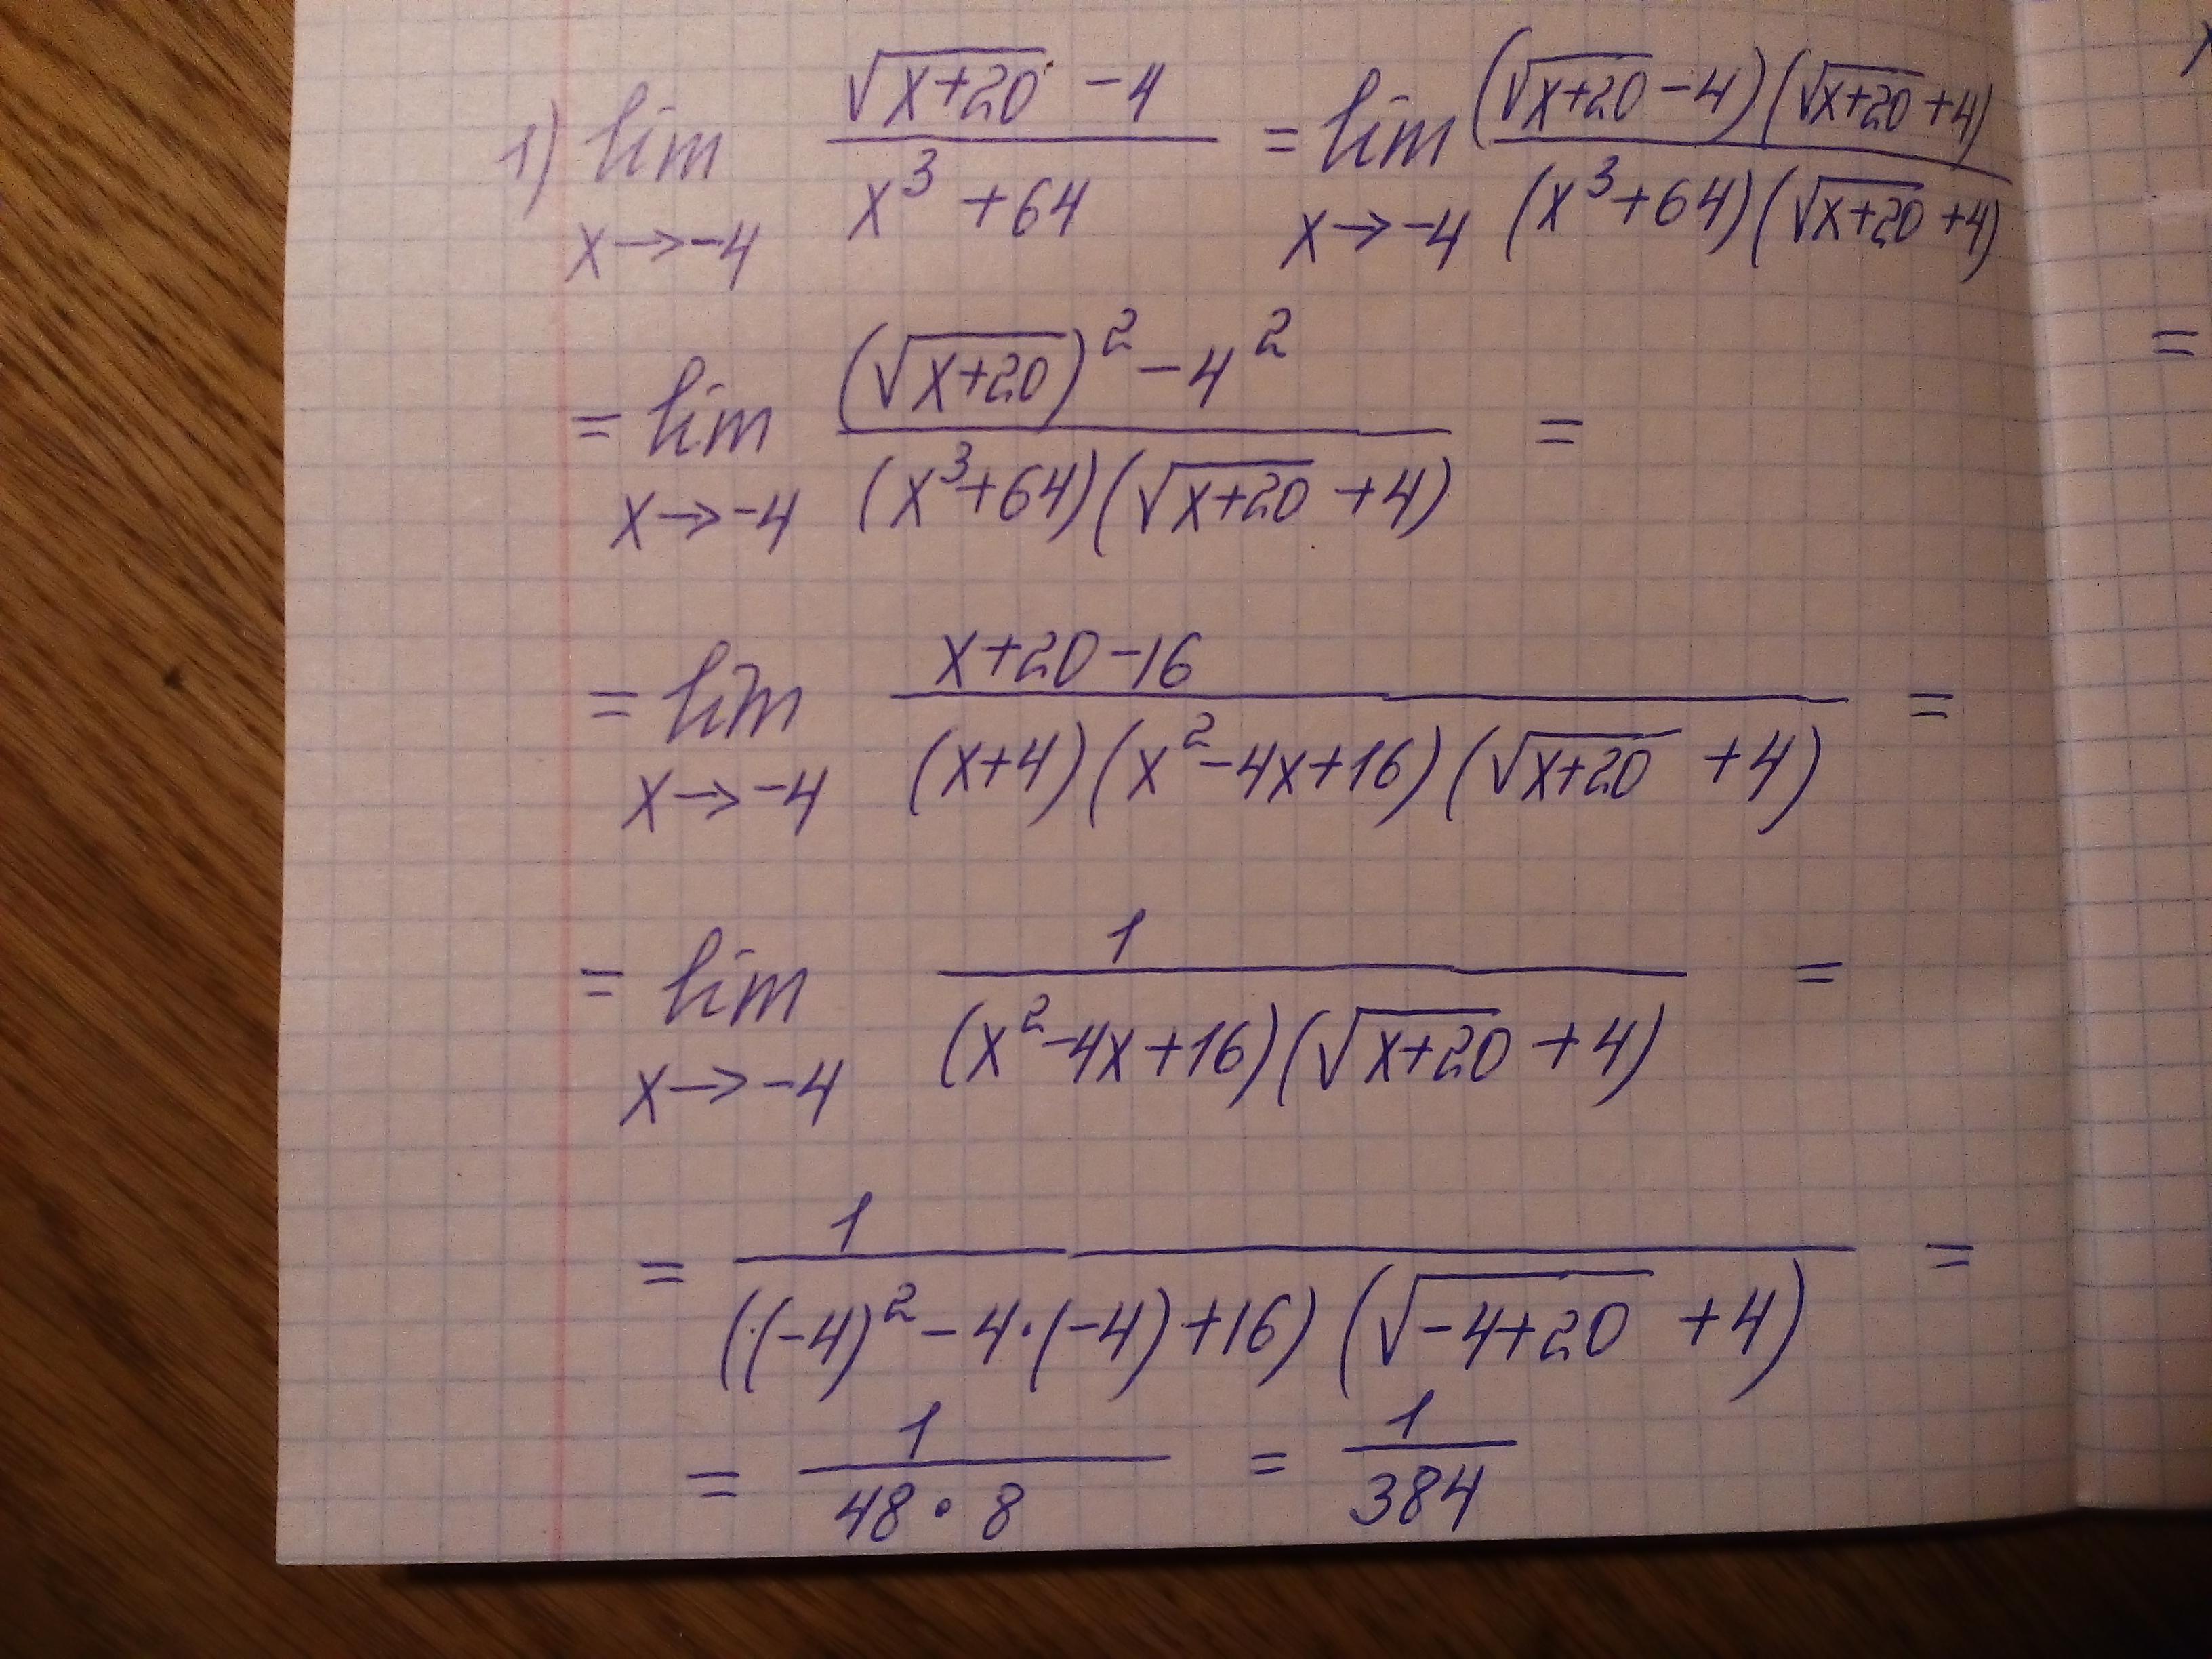 1) lim x→-4 (√(x+20) - 4) / (x³ + 64) = lim x→-4 ((√(x+20) - 4)(√(x+20) + 4)) / ((x³+64)(√(x+20) + 4))
= lim x→-4 ((√(x+20))² - 4²) / ((x³+64)(√(x+20) + 4)) =
= lim x→-4 (x+20-16) / ((x+4)(x²-4x+16)(√(x+20) + 4)) =
= lim x→-4 1 / ((x²-4x+16)(√(x+20) + 4)) =
= 1 / (((-4)² - 4·(-4) + 16)(√(-4+20) + 4)) =
= 1 / (48·8) = 1/384
=